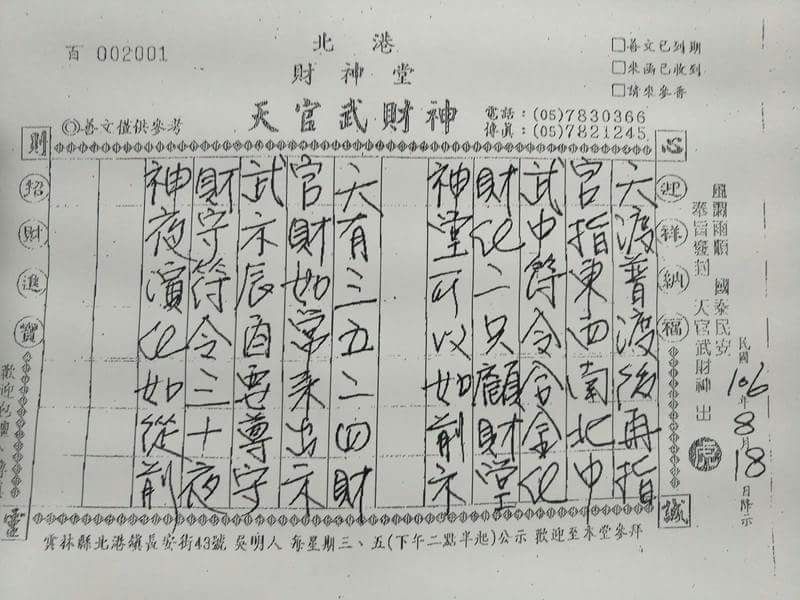 百 002001
北港
財神堂
天官武財神
□善文已到期
□來函已收到
□請來參香
◎善文僅供參考
電話：(05)7830366
傳真：(05)7821245
心
誠
則
靈
迎祥納福
招財進寶
風調雨順 國泰民安
奉旨發封 天官武財神 出
民國106年8月18日降示
天渡普渡後再指
官指東西南北中
武中符令合金化
財化二只顧財堂
神堂可以如前示
天有三五二四財
官財如常來出示
武示辰酉要尊守
財守符令三十夜
神夜演化如從前
雲林縣北港鎮長安街43號 吳明人 每星期三、五(下午二點半起)公示 歡迎至本堂參拜